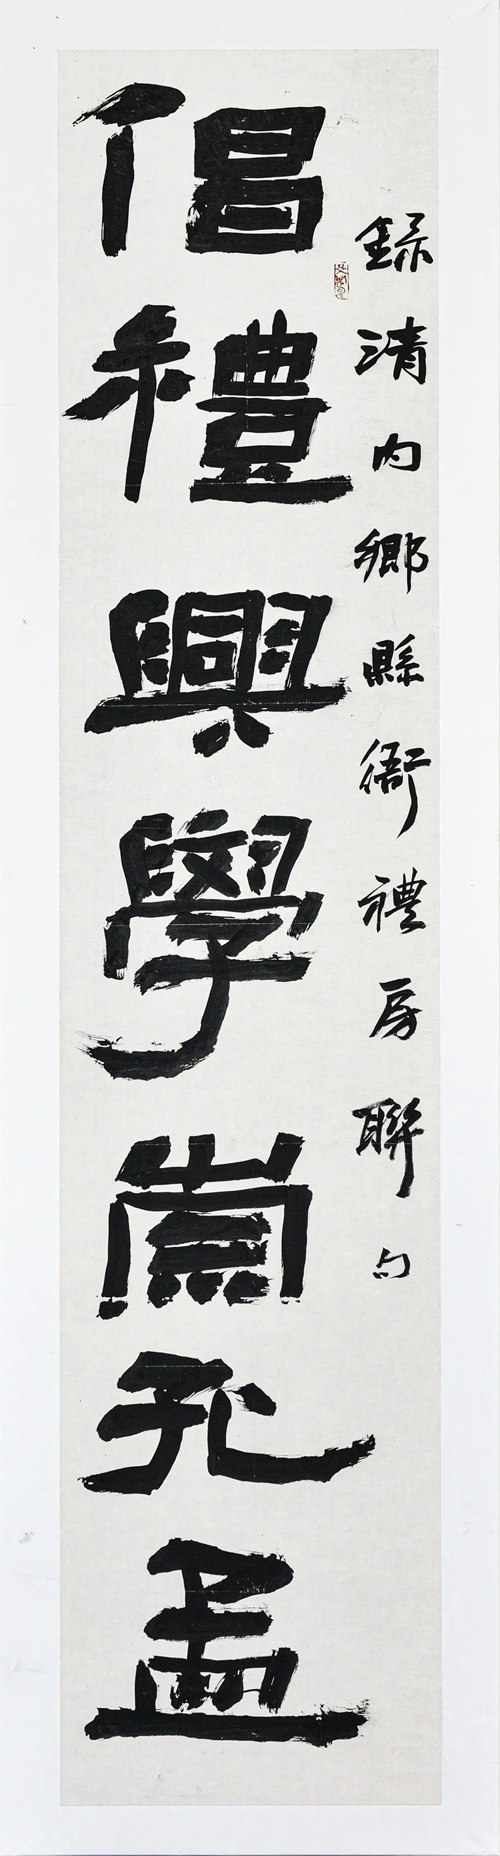 錄清内鄉縣衙禮房聯句
倡禮興學崇孔孟